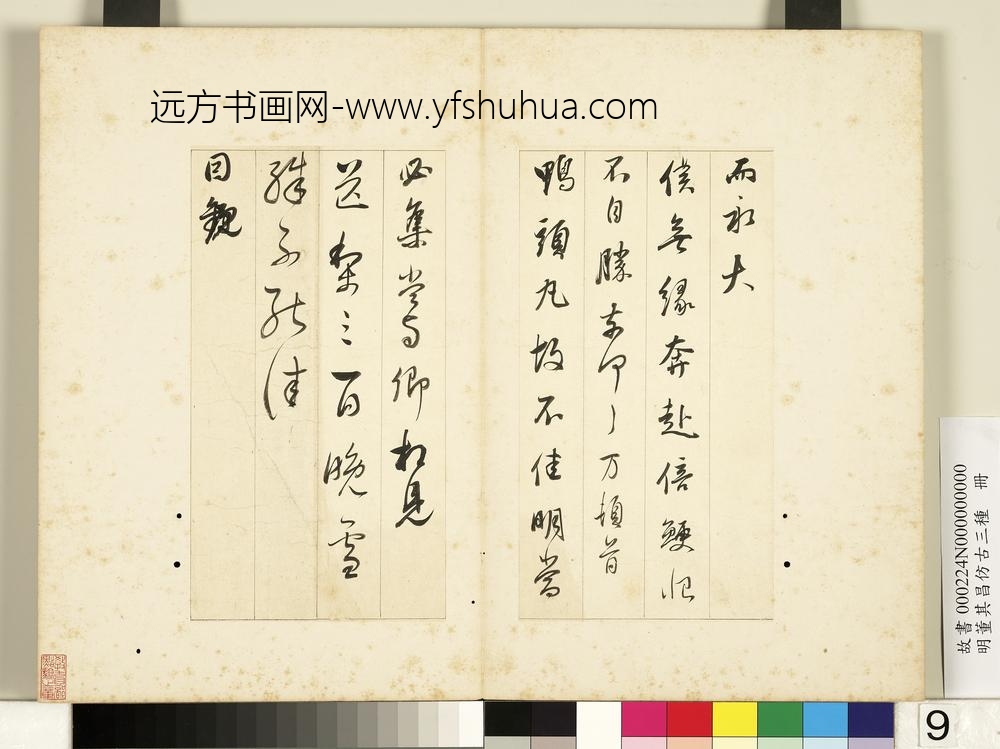 远方书画网-www.yfshuhua.com
而永大
僕無緣奔赴倍鯁恨
不自勝力即丶万頓首
鴨頭丸故不佳明當
必集當與卿相見
送梨三百晚雪
殊不能佳
目觀
故書000224N000000000
明董其昌仿古三種 冊
9